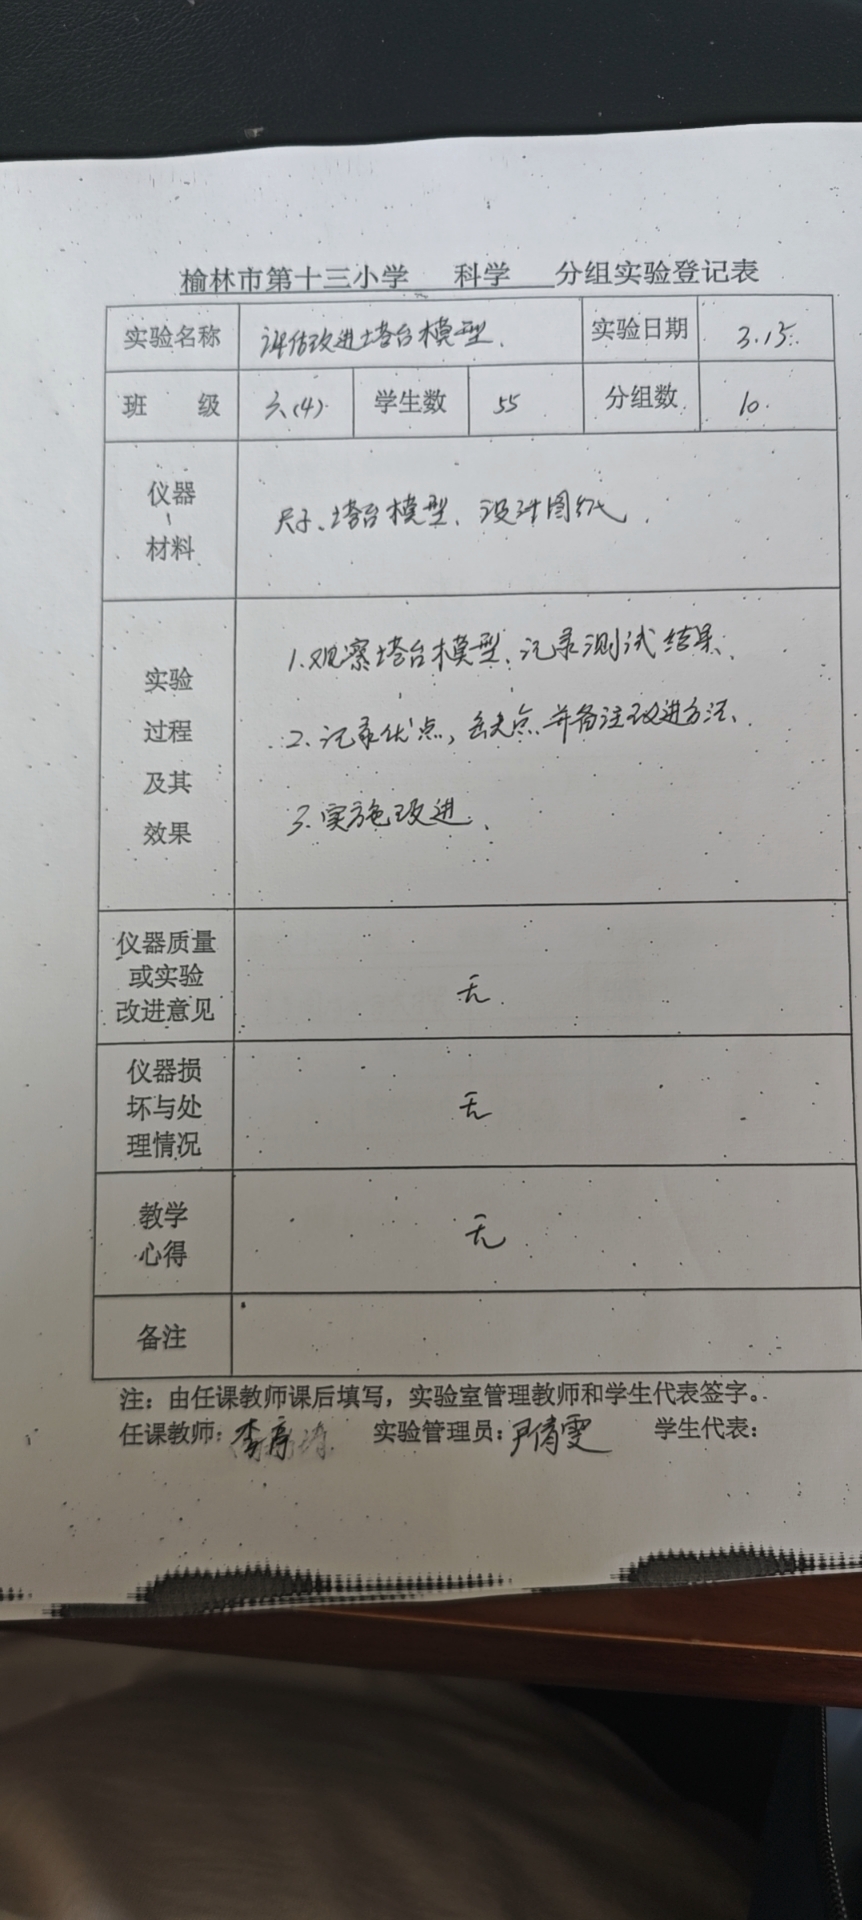 榆林市第十三小学 科学 分组实验登记表
实验名称 评估改进塔台模型. 实验日期 3.15.
班 级 六(4) 学生数 55 分组数 10.
仪器
、
材料
尺子、塔台模型、设计图纸.
实验
过程
及其
效果
1.观察塔台模型、记录测试结果、
2、记录优点，缺点并备注改进方法、
3.实施改进、
仪器质量
或实验
改进意见
无.
仪器损
坏与处
理情况
无
教学
心得
无
备注
注：由任课教师课后填写，实验室管理教师和学生代表签字。
任课教师: 李 实验管理员: 尹倩雯 学生代表: